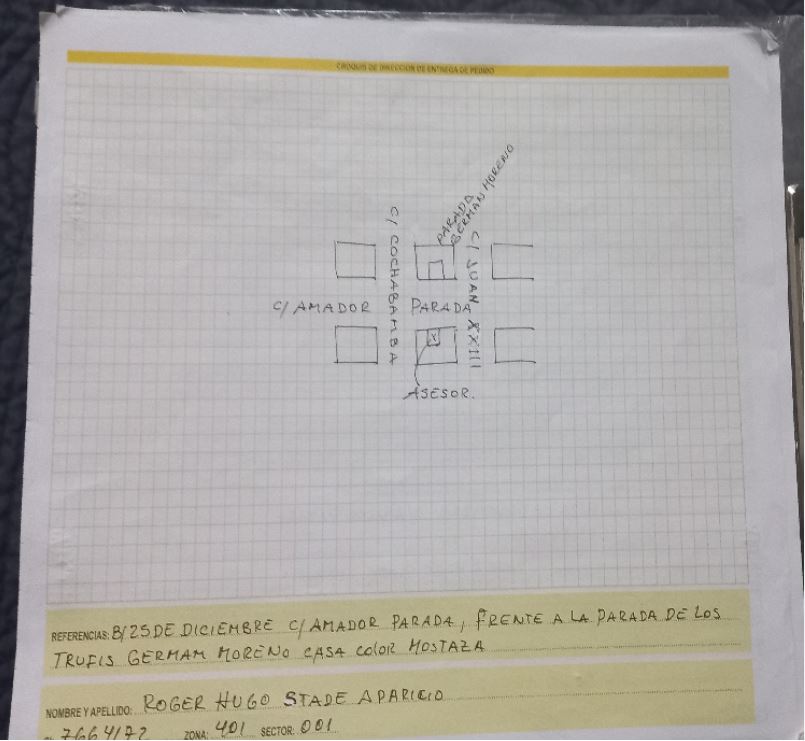 CROQUIS DE DIRECCION DE ENTREGA DE PEDIDO
PARADA
GERMAN MORENO
C/ COCHABAMBA
C/ JUAN XXIII
C/ AMADOR PARADA
X
ASESOR.
REFERENCIAS: B/25 DE DICIEMBRE C/ AMADOR PARADA, FRENTE A LA PARADA DE LOS
TRUFIS GERMAM MORENO CASA COLOR MOSTAZA
NOMBRE Y APELLIDO: ROGER HUGO STADE APARICIO
7664172 ZONA: 401 SECTOR: 001